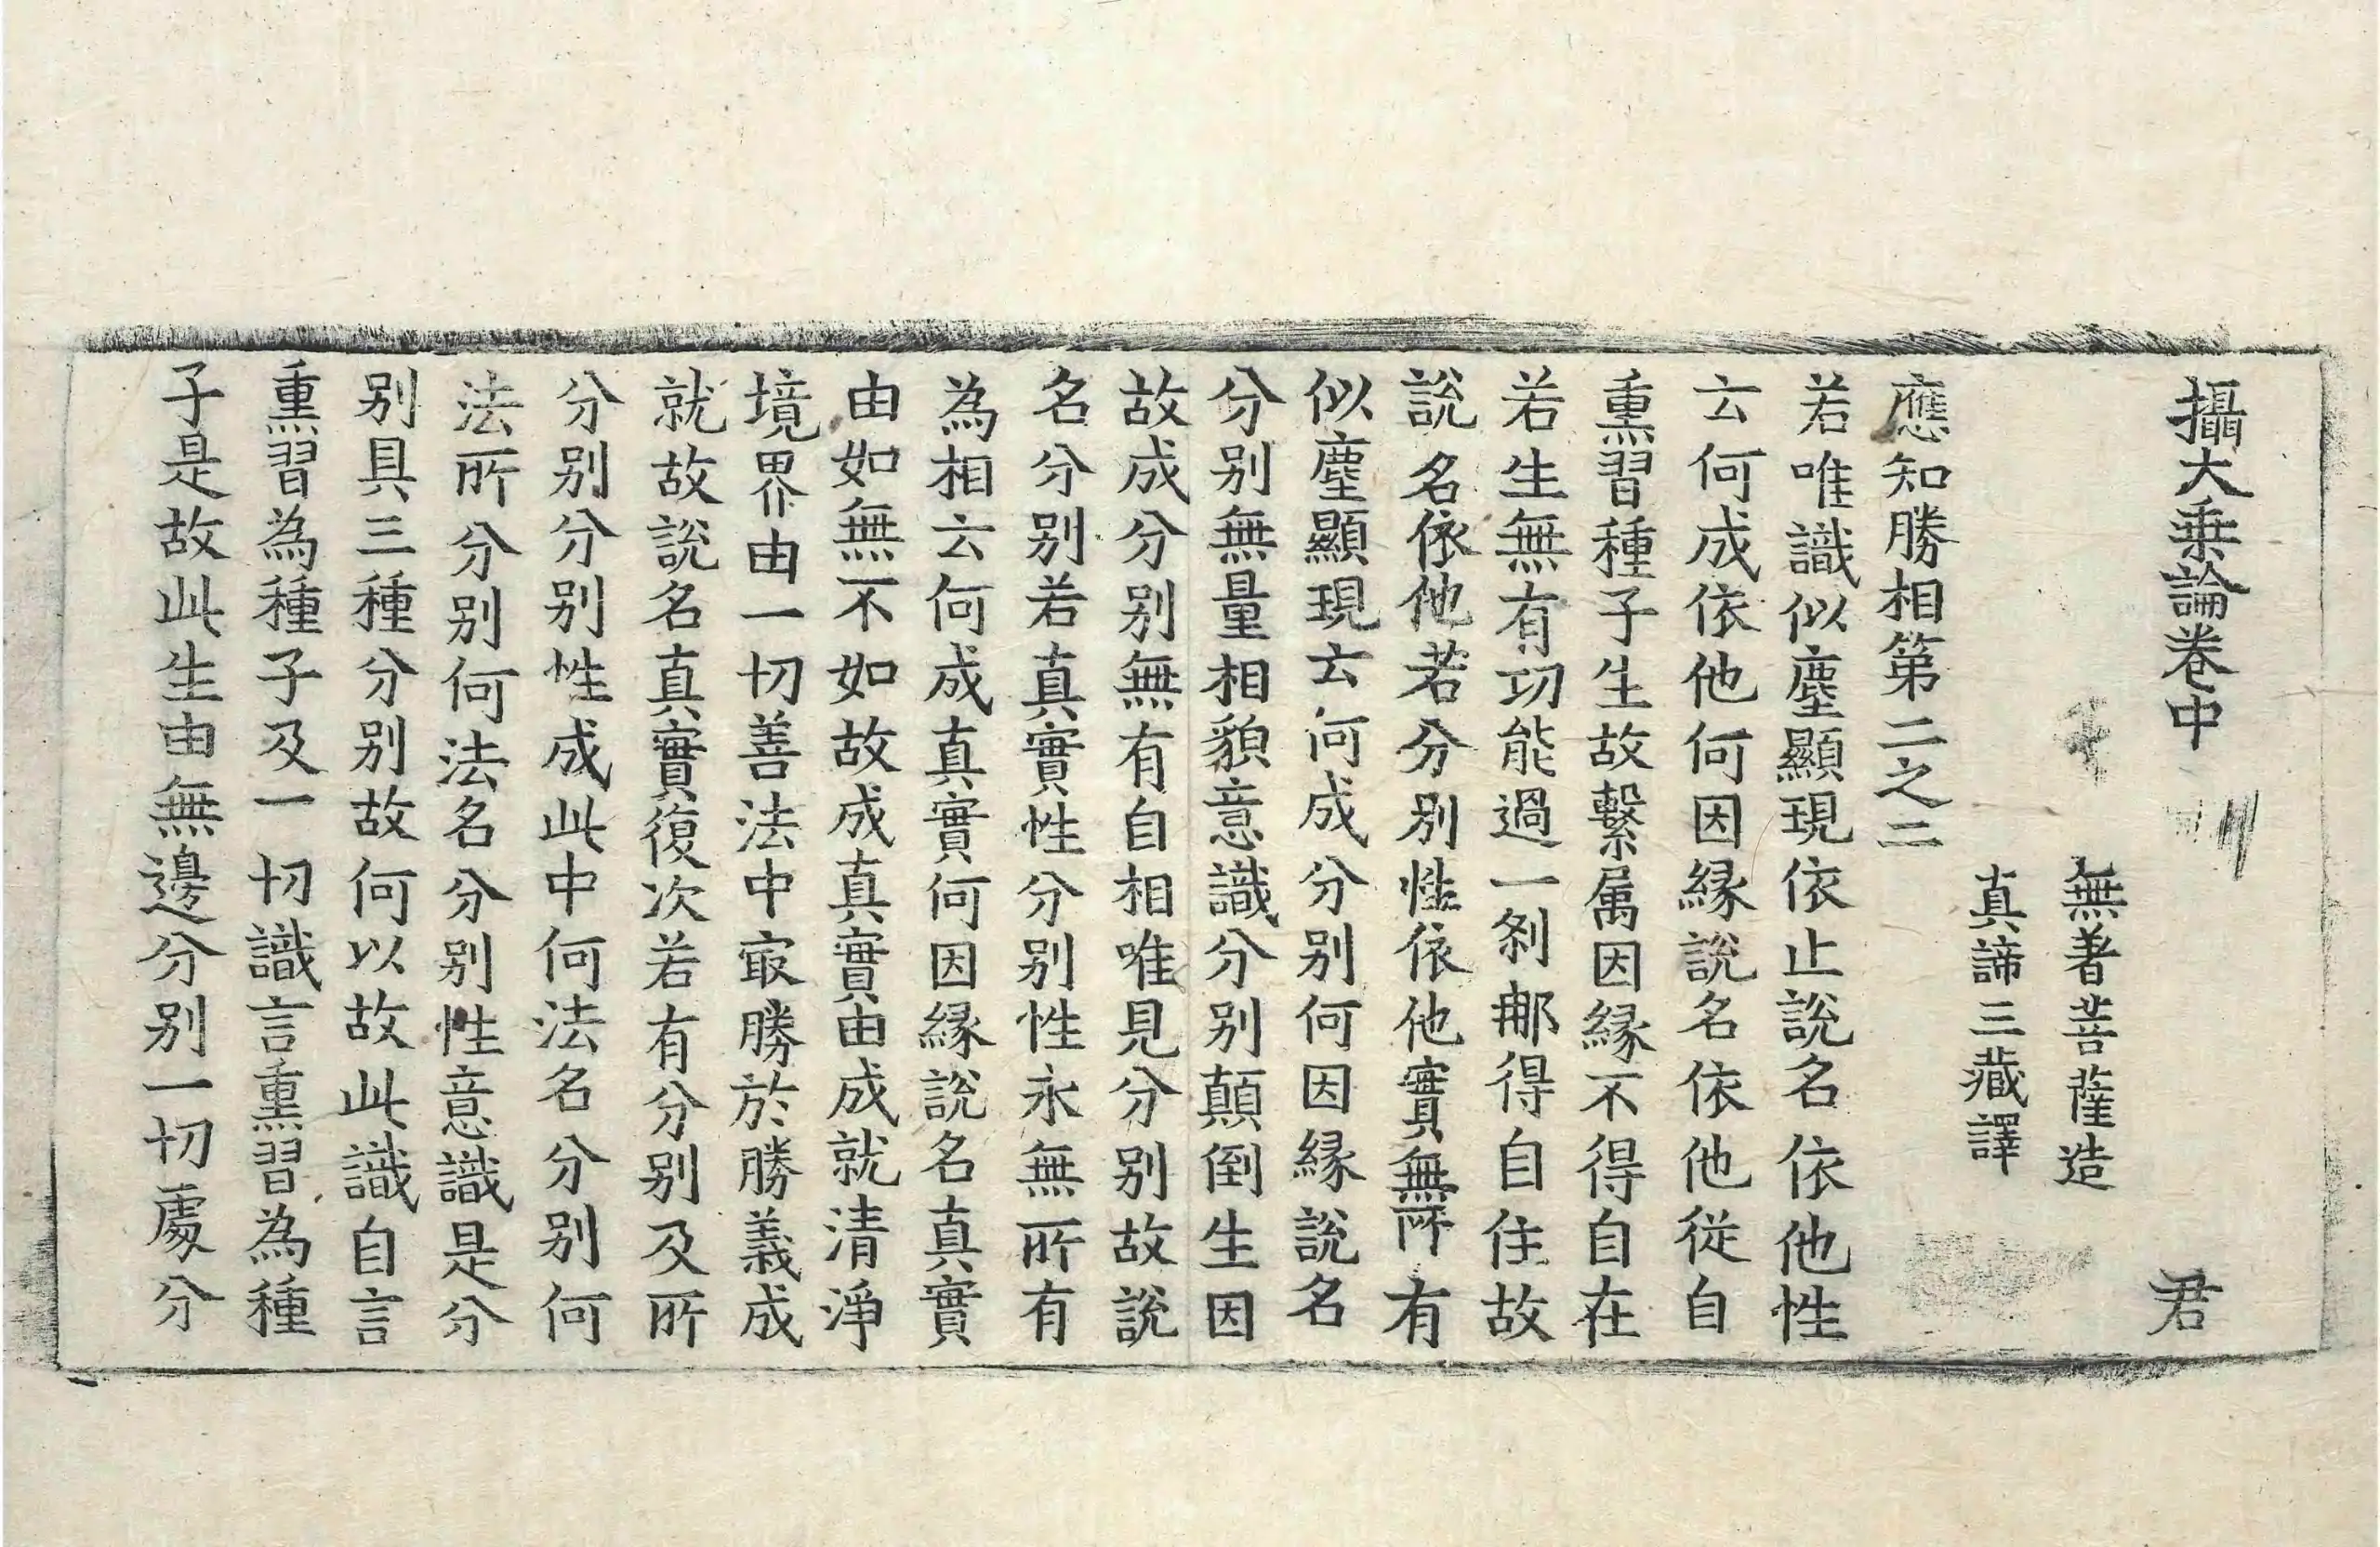 攝大乗論卷中 君
無著菩薩造
真諦三藏譯
應知勝相第二之二
若唯識似塵顯現依止說名依他性
云何成依他何因縁說名依他従自
熏習種子生故繫属因縁不得自在
若生無有功能過一剎那得自住故
說名依他若分別性依他實無所有
似塵顯現云何成分别何因縁說名
分别無量相貌意識分别顛倒生因
故成分别無有自相唯見分别故說
名分别若真實性分别性永無所有
為相云何成真實何因縁說名真實
由如無不如故成真實由成就清淨
境界由一切善法中㝡勝於勝義成
就故說名真實復次若有分别及所
分别分别性成此中何法名分别何
法所分别何法名分别性意識是分
别具三種分别故何以故此識自言
熏習為種子及一切識言熏習為種
子是故此生由無邊分别一切處分